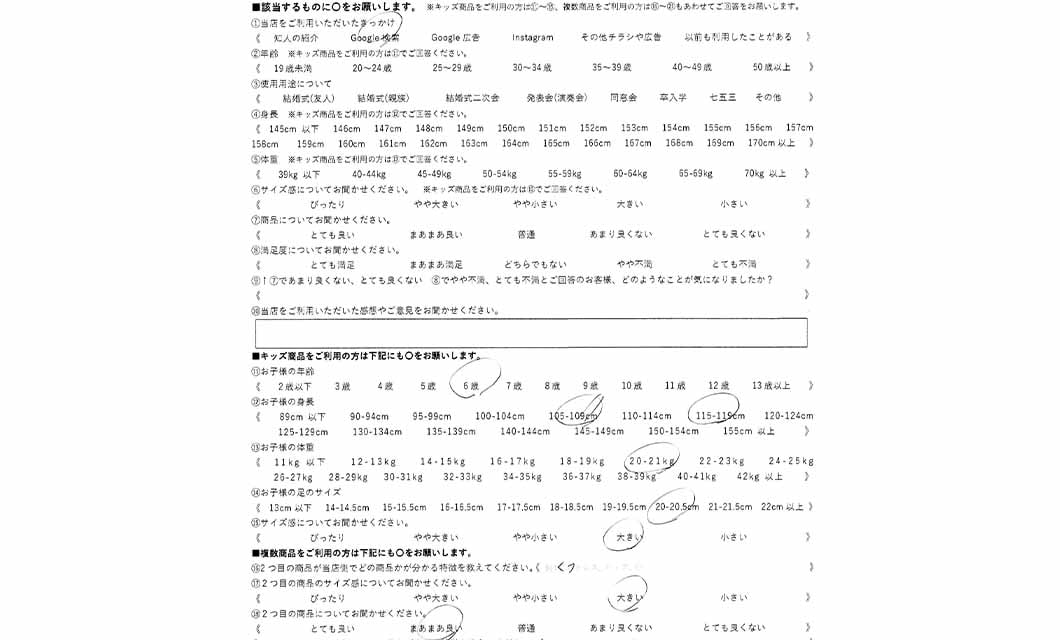 ■該当するものに〇をお願いします。 ※キッズ商品をご利用の方は⑪～⑮、複数商品をご利用の方は⑯～⑳もあわせてご回答をお願いします。
①当店をご利用いただいたきっかけ
《 知人の紹介 Google検索 Google広告 Instagram その他チラシや広告 以前も利用したことがある 》
②年齢 ※キッズ商品をご利用の方は⑪でご回答ください。
《 19歳未満 20～24歳 25～29歳 30～34歳 35～39歳 40～49歳 50歳以上 》
③使用用途について
《 結婚式(友人) 結婚式(親族) 結婚式二次会 発表会(演奏会) 同窓会 卒入学 七五三 その他 》
④身長 ※キッズ商品をご利用の方は⑫でご回答ください。
《 145cm 以下 146cm 147cm 148cm 149cm 150cm 151cm 152cm 153cm 154cm 155cm 156cm 157cm
158cm 159cm 160cm 161cm 162cm 163cm 164cm 165cm 166cm 167cm 168cm 169cm 170cm以上 》
⑤体重 ※キッズ商品をご利用の方は⑬でご回答ください。
《 39kg 以下 40-44kg 45-49kg 50-54kg 55-59kg 60-64kg 65-69kg 70kg 以上 》
⑥サイズ感についてお聞かせください。 ※キッズ商品をご利用の方は⑮でご回答ください。
《 ぴったり やや大きい やや小さい 大きい 小さい 》
⑦商品についてお聞かせください。
《 とても良い まあまあ良い 普通 あまり良くない とても良くない 》
⑧満足度についてお聞かせください。
《 とても満足 まあまあ満足 どちらでもない やや不満 とても不満 》
⑨↑⑦であまり良くない、とても良くない ⑧でやや不満、とても不満とご回答のお客様、どのようなことが気になりましたか？
《 》
⑩当店をご利用いただいた感想やご意見をお聞かせください。
■キッズ商品をご利用の方は下記にも〇をお願いします。
⑪お子様の年齢
《 2歳以下 3歳 4歳 5歳 6歳 7歳 8歳 9歳 10歳 11歳 12歳 13歳以上 》
⑫お子様の身長
《 89cm 以下 90-94cm 95-99cm 100-104cm 105-109cm 110-114cm 115-119cm 120-124cm
125-129cm 130-134cm 135-139cm 140-144cm 145-149cm 150-154cm 155cm 以上 》
⑬お子様の体重
《 11kg 以下 12-13kg 14-15kg 16-17kg 18-19kg 20-21kg 22-23kg 24-25kg
26-27kg 28-29kg 30-31kg 32-33kg 34-35kg 36-37kg 38-39kg 40-41kg 42kg 以上 》
⑭お子様の足のサイズ
《 13cm以下 14-14.5cm 15-15.5cm 16-16.5cm 17-17.5cm 18-18.5cm 19-19.5cm 20-20.5cm 21-21.5cm 22cm以上 》
⑮サイズ感についてお聞かせください。
《 ぴったり やや大きい やや小さい 大きい 小さい 》
■複数商品をご利用の方は下記にも〇をお願いします。
⑯2つ目の商品が当店側でどの商品かが分かる特徴を教えてください。《 くつ 》
⑰2つ目の商品のサイズ感についてお聞かせください。
《 ぴったり やや大きい やや小さい 大きい 小さい 》
⑱2つ目の商品についてお聞かせください。
《 とても良い まあまあ良い 普通 あまり良くない とても良くない 》